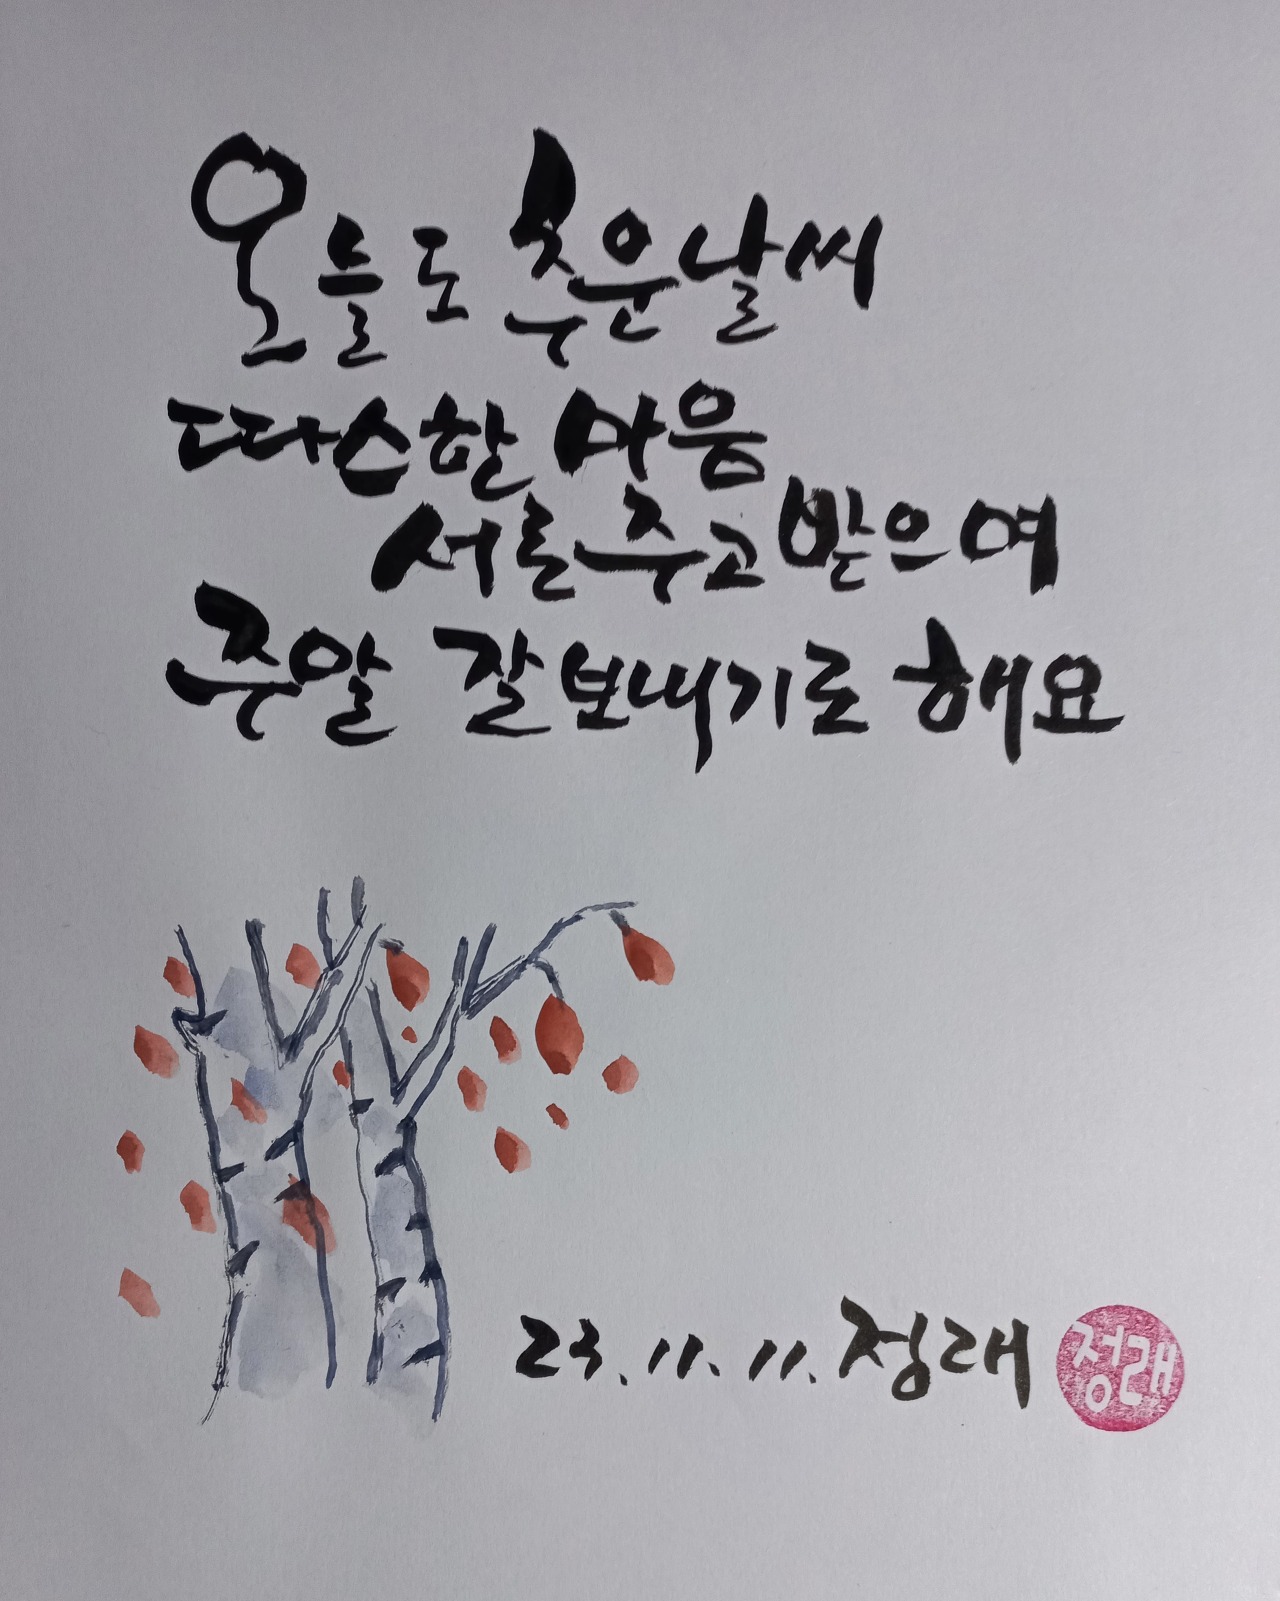 오늘도 추운날씨
따스한 마음
서로주고받으며
주말 잘보내기로 해요
23. 11. 11. 정래
정래